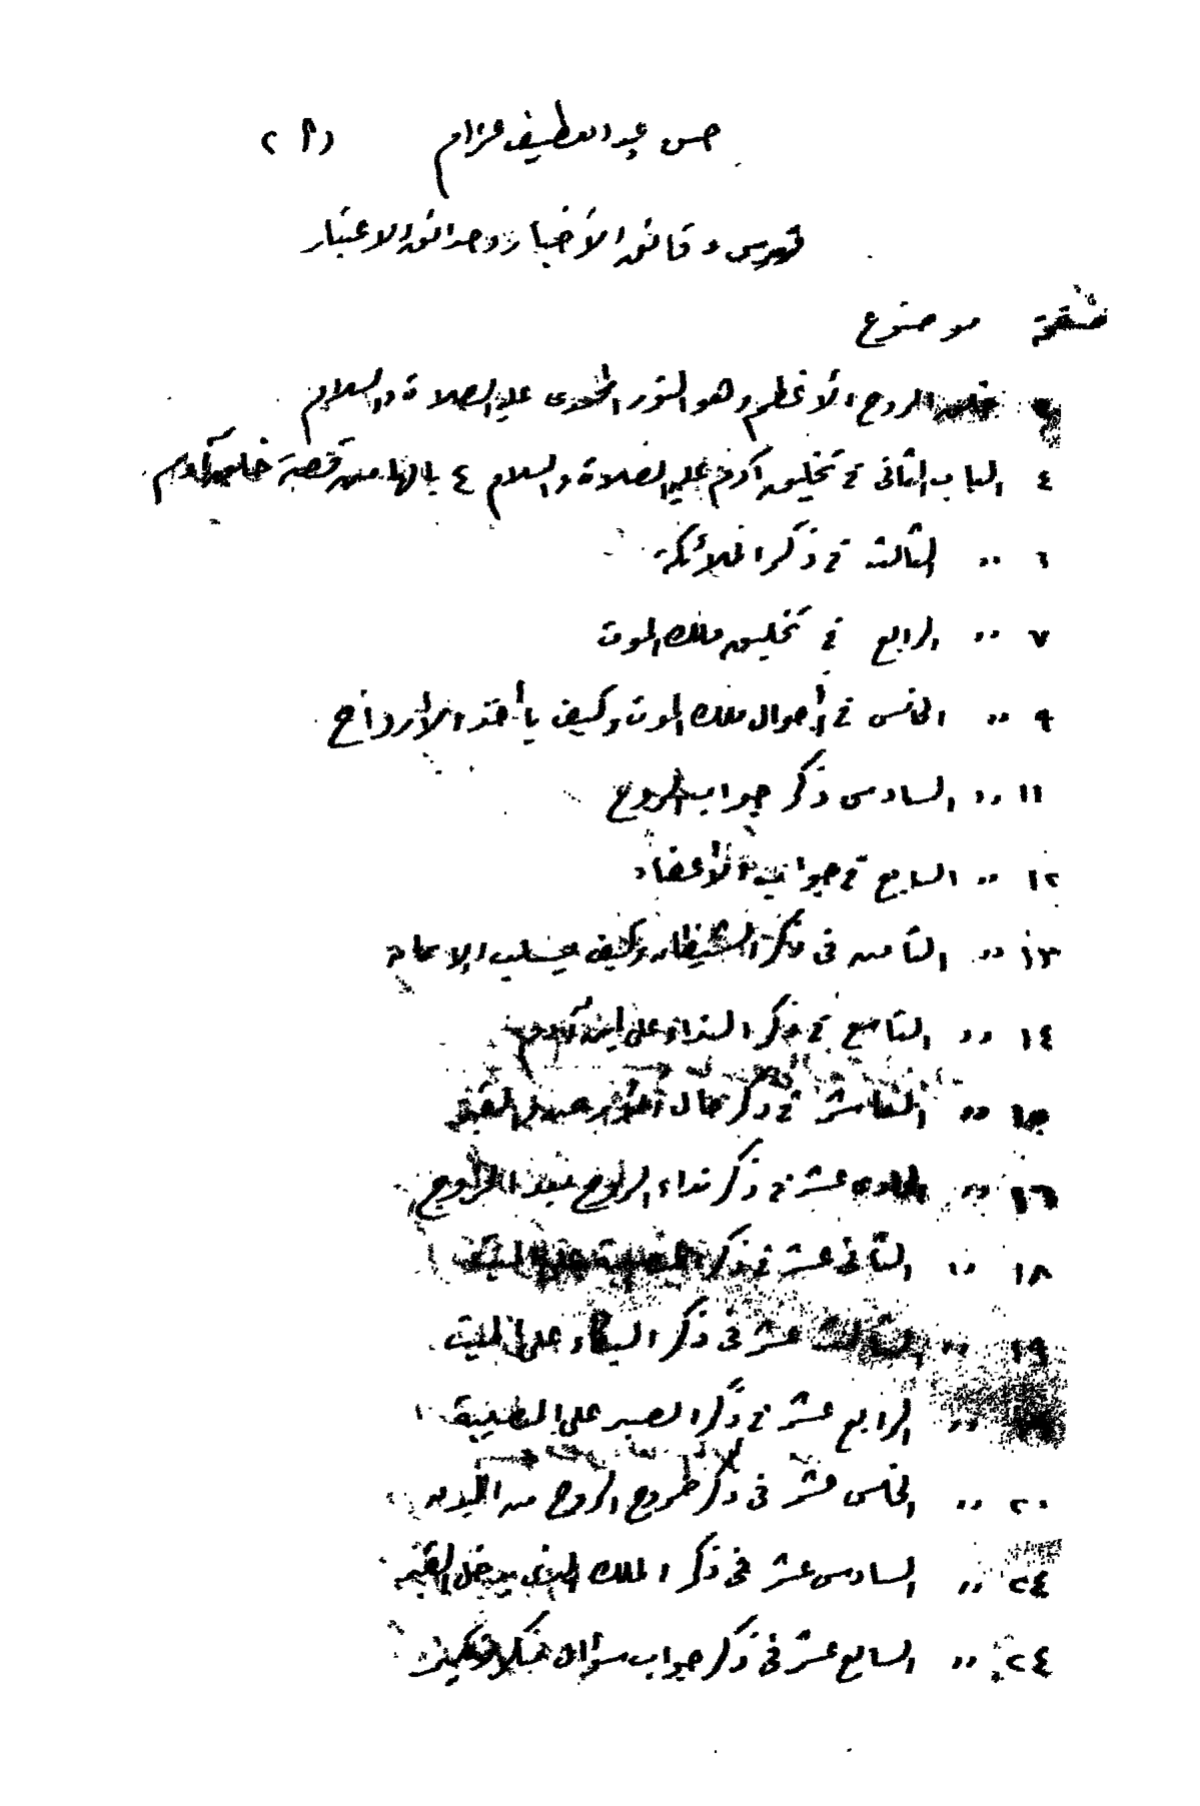 حسن عبد اللطيف عزام (٢ أ)
فهرس دقائق الأخبار وحدائق الاعتبار
صفحة موضوع
خلق الروح الأعظم وهو النور المحمدى عليه الصلاة والسلام
٤ الباب الثانى فى تخليق آدم عليه الصلاة والسلام ٤ بالهامش قصة خلق آدم
٦ ,, الثالث فى ذكر الملائكة
٧ ,, الرابع فى تخليق ملك الموت
٩ ,, الخامس فى أحوال ملك الموت وكيف يأخذ الأرواح
١١ ,, السادس ذكر جواب الروح
١٢ ,, السابع فى جواب الأعضاء
١٣ ,, الثامن فى ذكر الشيطان وكيف يسلب الإيمان
١٤ ,, التاسع فى ذكر النداء على ابن آدم
١٥ ,, العاشر فى ذكر حال القبر
١٦ ,, الحادى عشر فى ذكر نداء الروح بعد الخروج
١٨ ,, الثانى عشر فى ذكر المصيبة على الميت
١٩ ,, الثالث عشر فى ذكر البكاء على الميت
,, الرابع عشر فى ذكر الصبر على المصيبة
٢٠ ,, الخامس عشر فى ذكر خروج الروح من البدن
٢٤ ,, السادس عشر فى ذكر الملك الذى يدخل القبر
٢٤ ,, السابع عشر فى ذكر جواب سؤال منكر ونكير